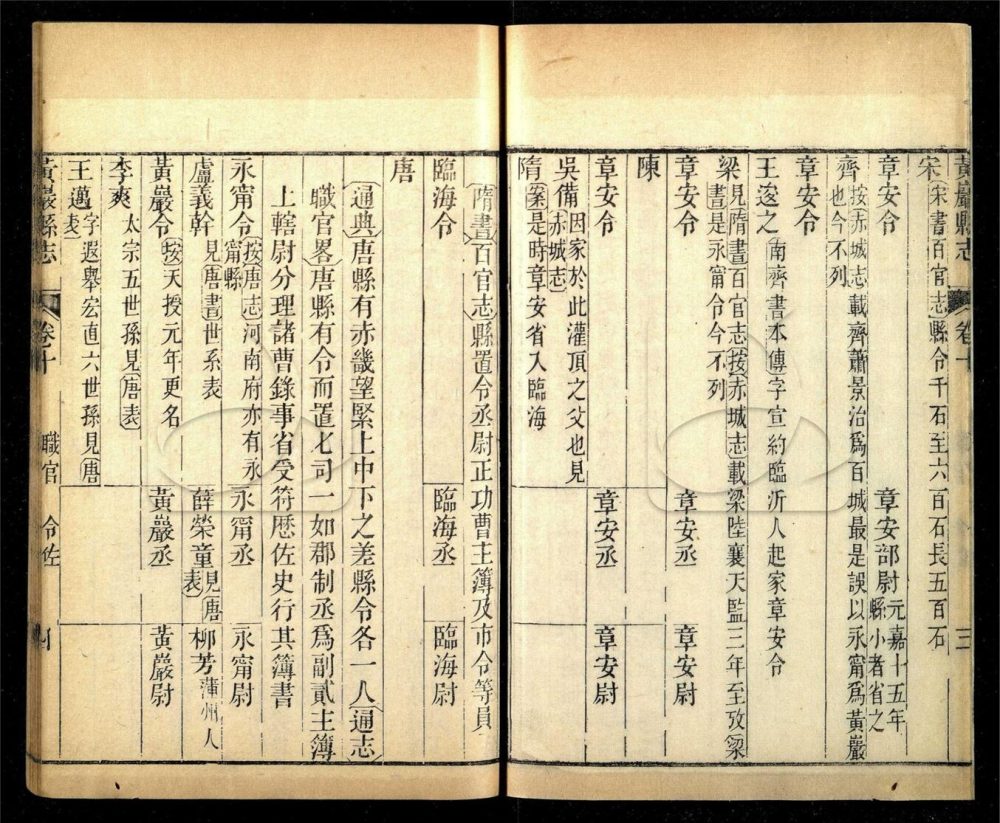 黃巖縣志 卷十 三
宋 宋書百官志縣令千石至六百石長五百石
章安令 章安部尉 元嘉十五年縣小者省之
齊 按赤城志載齊蕭景治爲百城最是誤以永甯爲黃巖也今不列
章安令
王逡之 南齊書本傳字宣約臨沂人起家章安令
梁 見隋書百官志按赤城志載梁陸襄天監三年至攷梁書是永甯令今不列
章安令 章安丞 章安尉
陳
章安令 章安丞 章安尉
吳備 因家於此灌頂之父也見赤城志
隋 案是時章安省入臨海
隋書百官志縣置令丞尉正功曹主簿及市令等員
臨海令 臨海丞 臨海尉
唐
通典唐縣有赤畿望緊上中下之差縣令各一人通志
職官畧唐縣有令而置七司一如郡制丞爲副貳主簿
上轄尉分理諸曹錄事省受符歷佐史行其簿書
永甯令 按唐志河南府亦有永甯縣 永甯丞 永甯尉
盧義幹 見唐書世系表 薛榮童 見唐表 柳芳 蒲州人
黃巖令 按天授元年更名 黃巖丞 黃巖尉
李爽 太宗五世孫見唐表
王邁 字遐舉宏直六世孫見唐表
黃巖縣志 卷十 職官 令佐